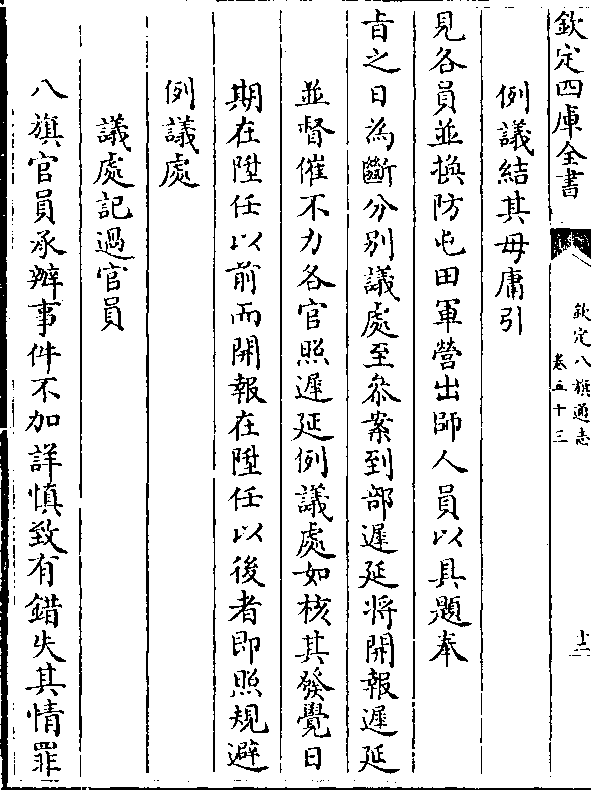 欽定四庫全書
欽定八旗通志
卷五十三
十二
例議結其毋庸引
見各員並換防屯田軍營出師人員以具題奉
旨之日為斷分别議處至叅案到部遲延將開報遲延
並督催不力各官照遲延例議處如核其發覺日
期在陞任以前而開報在陞任以後者即照規避
例議處
議處記過官員
八旗官員承辦事件不加詳慎致有錯失其情罪